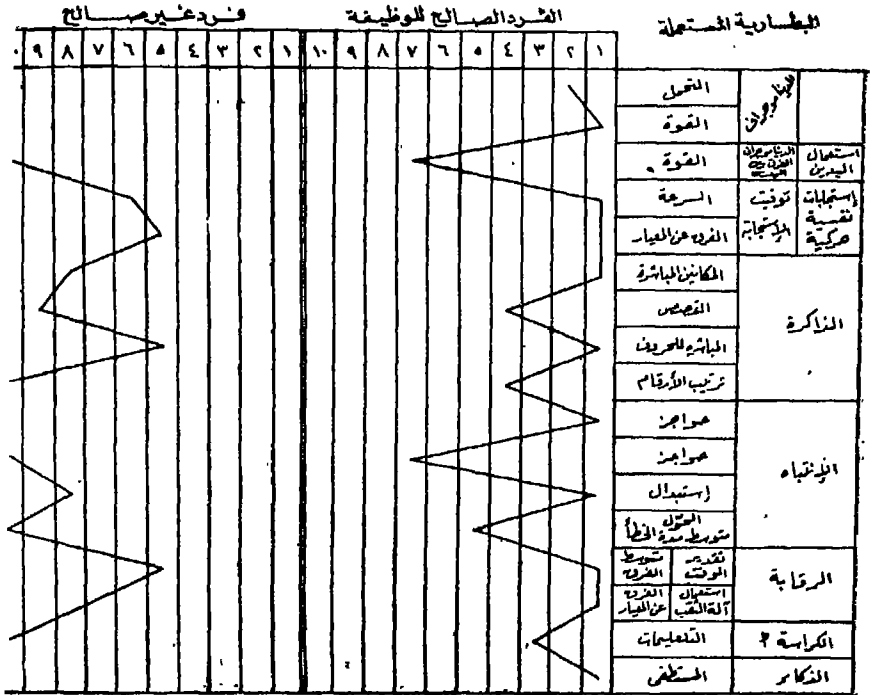 البطارية المستعملة
الفرد الصالح للوظيفة
فرد غير صالح
١ ٢ ٣ ٤ ٥ ٦ ٧ ٨ ٩ ١٠ ١ ٢ ٣ ٤ ٥ ٦ ٧ ٨ ٩
التحمل
القوة
استعمال اليدين
القوة
إستجابات نفسية حركية
توقيت الإستجابة
السرعة
الفرق عن المعيار
الذاكرة
المباشرة
القصص
المباشرة للحروف
ترتيب الأرقام
الإنتباه
حواجز
حواجز
إستبدال
المحول
متوسط مدة الخطأ
الرقابة
تقدير الوقت
متوسط الفروق
استعمال آلة الثقب
الفرق عن المعيار
الكراسة ٣
التعليمات
الذكاء